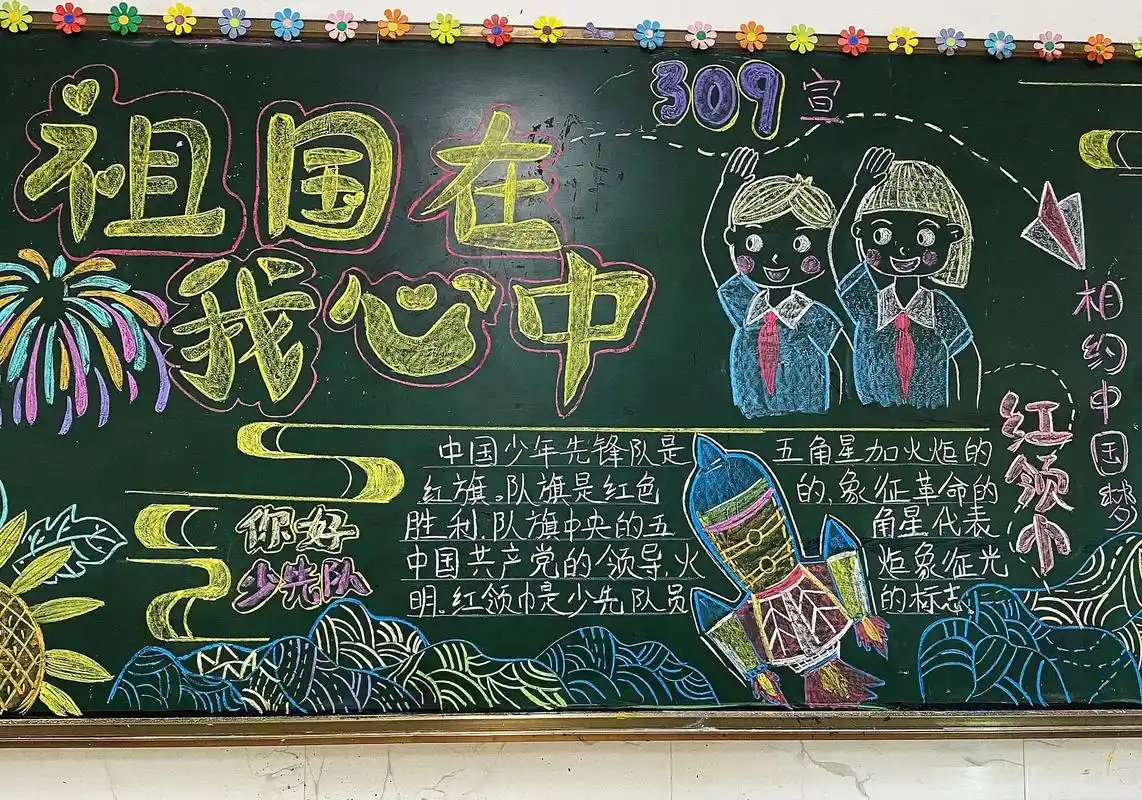 祖国在
我心中
309 宣
你好
少先队
中国少年先锋队是 五角星加火炬的
红旗。队旗是红色 的,象征革命的
胜利,队旗中央的五 角星代表
中国共产党的领导,火 炬象征光
明。红领巾是少先队员 的标志。
红领巾
相约中国梦